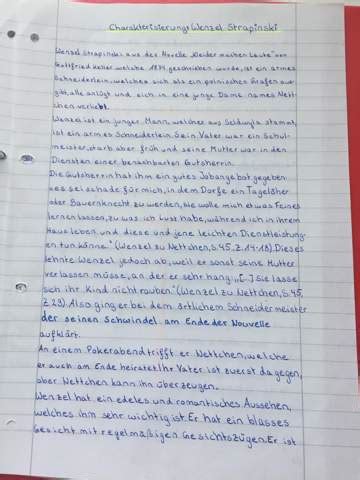 Charakterisierung: Wenzel Strapinski
Wenzel Strapinski aus der Novelle "Kleider machen Leute" von
Gottfried Keller welche 1874 geschrieben wurde, ist ein armes
Schneiderlein, welches sich als ein polnischen Grafen aus-
gibt, alle anlügt und sich in eine junge Dame names Nett-
chen verliebt.
Wenzel ist ein junger Mann, welcher aus Seldwyla stammt,
ist ein armes Schneiderlein. Sein Vater war ein Schul-
meister, starb aber früh und seine Mutter war in den
Diensten einer benachbarten Gutsherrin.
Die Gutsherrin hat ihm ein gutes Jobangebot gegeben
"es sei schade für mich, in dem Dorfe ein Tagelöher
oder Bauernknecht zu werden, sie wolle mich etwas Feines
lernen lassen, zu was ich Lust habe, während ich in ihrem
Haus leben und diese und jene leichten Dienstleistung-
en tun könne." (Wenzel zu Nettchen, S.45, Z.14-18). Dieses
lehnte Wenzel jedoch ab, weil er sonst seine Mutter
verlassen müsse, an der er sehr hang: "[...] Sie lasse
sich ihr Kind nicht rauben" (Wenzel zu Nettchen, S.45,
Z.23). Also ging er bei dem örtlichem Schneidermeister
der seinen Schwindel am Ende der Novelle
aufklärt.
An einem Pokerabend trifft er Nettchen, welche
er auch am Ende heiratet. Ihr Vater ist zuerst dagegen,
aber Nettchen kann ihn überzeugen.
Wenzel hat ein edeles und romantisches Aussehen,
welches ihm sehr wichtig ist. Er hat ein blasses
Gesicht mit regelmäßigen Gesichtszügen. Er ist